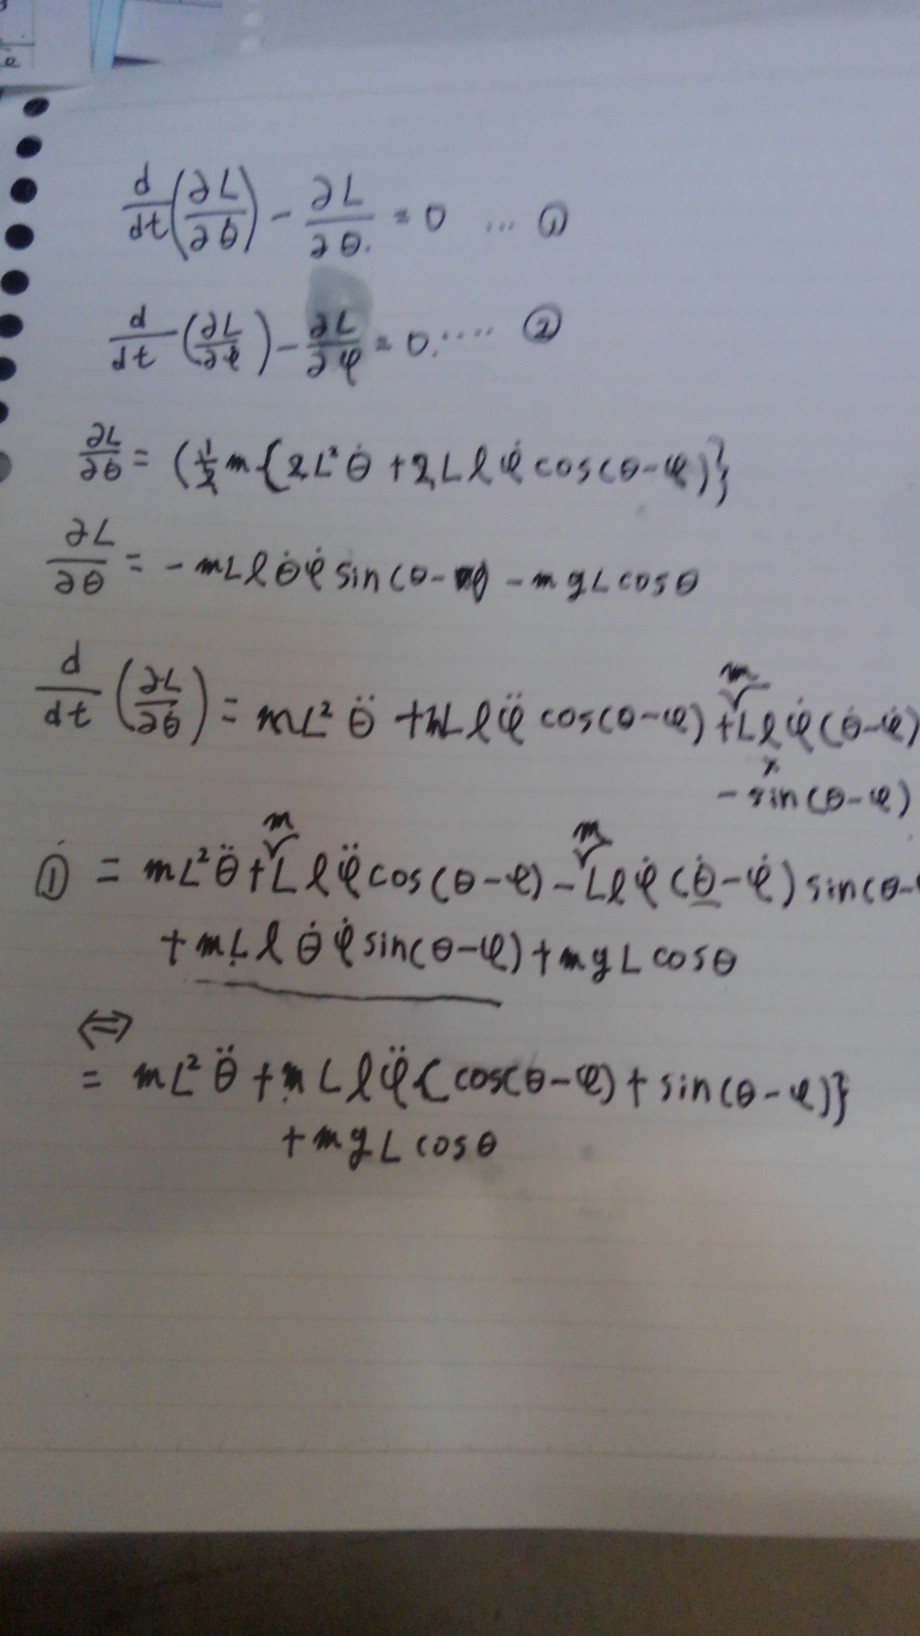 d/dt(∂L/∂θ̇) - ∂L/∂θ = 0 ... ①
d/dt(∂L/∂φ̇) - ∂L/∂φ = 0. .... ②
∂L/∂θ̇ = (1/2 m{2L²θ̇ + 2Llφ̇ cos(θ-φ)}
∂L/∂θ = - mLlθ̇φ̇ sin(θ-φ) - mgL cosθ
d/dt(∂L/∂θ̇) = mL²θ̈ + mLlφ̈ cos(θ-φ) + mLlφ̇(θ̇-φ̇)
x
- sin(θ-φ)
① = mL²θ̈ + mLlφ̈ cos(θ-φ) - mLlφ̇(θ̇-φ̇) sin(θ-
+ mLlθ̇φ̇ sin(θ-φ) + mgL cosθ
⇔
= mL²θ̈ + mLlφ̈{cos(θ-φ) + sin(θ-φ)}
+ mgL cosθ